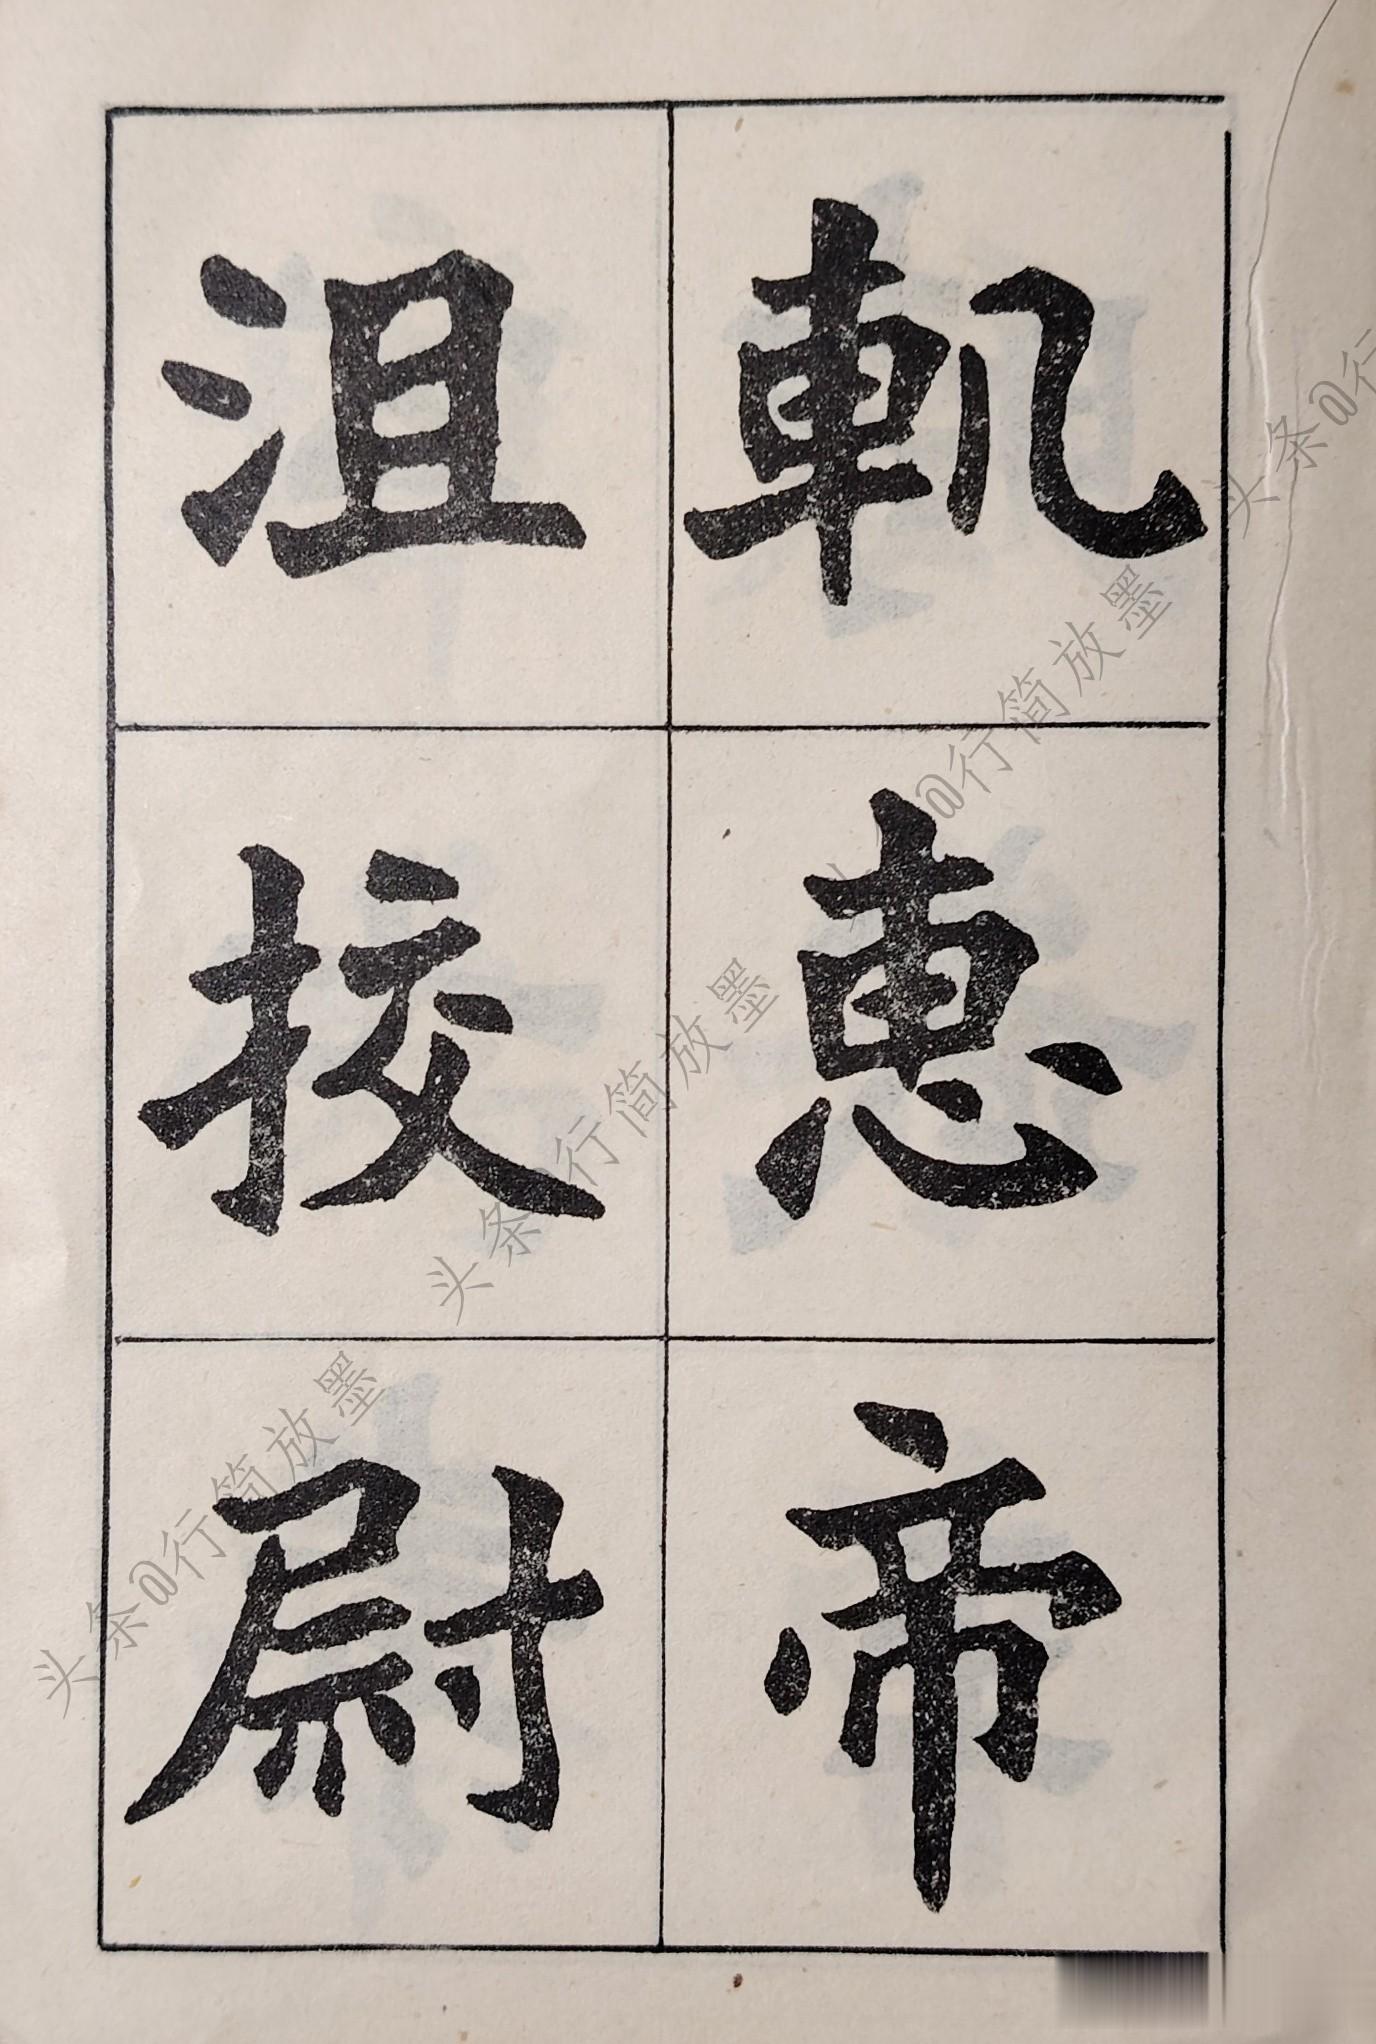 軌惠帝
沮挍尉
头条@行简放墨
头条@行简放墨
头条@行简放墨
头条@行